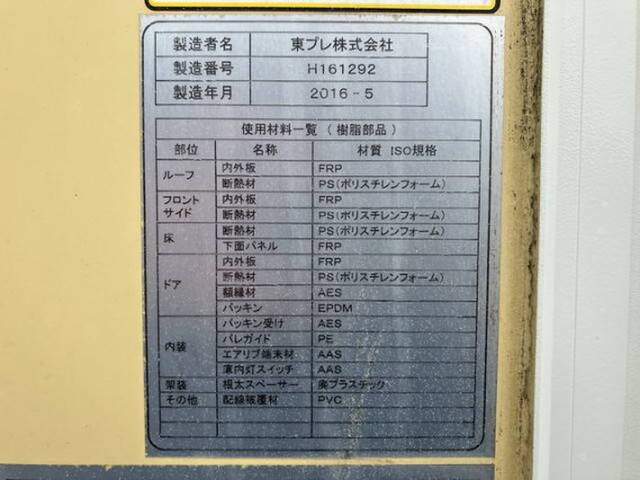 製造者名 東プレ株式会社
製造番号 H161292
製造年月 2016-5
使用材料一覧（樹脂部品）
部位 名称 材質 ISO規格
ルーフ 内外板 FRP
断熱材 PS(ポリスチレンフォーム)
フロント サイド 内外板 FRP
断熱材 PS(ポリスチレンフォーム)
床 断熱材 PS(ポリスチレンフォーム)
下面パネル FRP
ドア 内外板 FRP
断熱材 PS(ポリスチレンフォーム)
額縁材 AES
パッキン EPDM
内装 パッキン受け AES
パレガイド PE
エアリブ端末材 AAS
庫内灯スイッチ AAS
架装 根太スペーサー 廃プラスチック
その他 配線被覆材 PVC